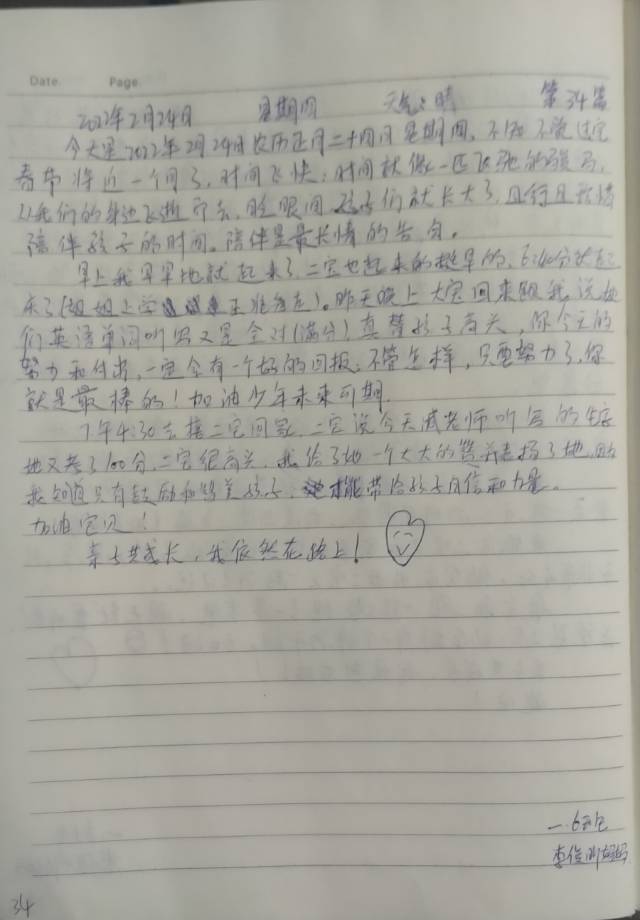 Date Page
2022年2月24日 星期四 天气：晴 第34篇
今天是2022年2月24日农历正月二十四日星期四，不知不觉过完
春节将近一个月了，时间飞快，时间就像一匹飞驰的骏马，
从我们的身边飞逝而去，眨眼间孩子们就长大了，且行且珍惜
陪伴孩子的时间。陪伴是最长情的告白。
早上我早早地就起来了，二宝也起来的挺早的，6:40分就起
来了(姐姐上学 正准备走)。昨天晚上大宝回来跟我说她
们英语单词听写又是全对(满分)真替孩子高兴，你今天的
努力和付出，一定会有一个好的回报，不管怎样，只要努力了，你
就是最棒的！加油少年未来可期。
下午4:30去接二宝回家，二宝说今天臧老师听写的生字
她又考了100分，二宝很高兴，我给了她一个大大的赞并表扬了她，因为
我知道只有鼓励和赞美孩子，才能带给孩子自信和力量。
加油宝贝！
亲子共成长，我依然在路上！
一·6班
李俊 妈妈
34